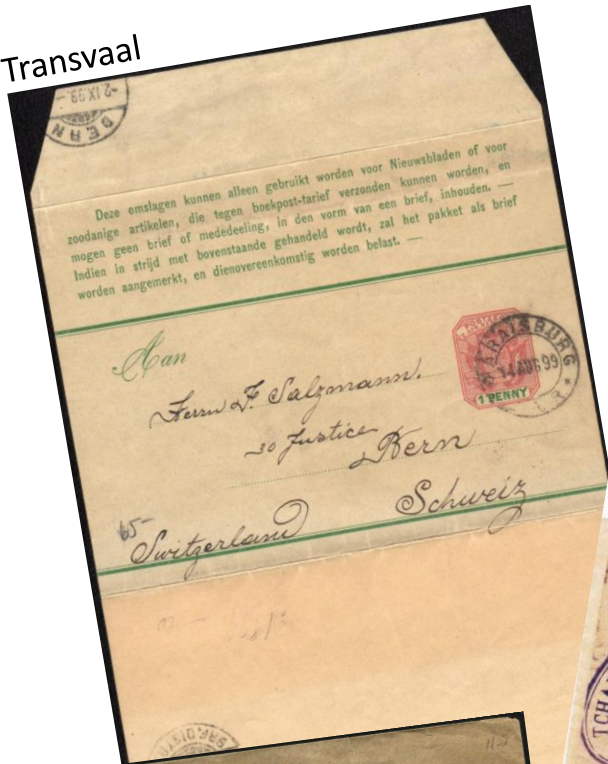 Transvaal
-2.IX.99.-
BERN
Deze omslagen kunnen alleen gebruikt worden voor Nieuwsbladen of voor
zoodanige artikelen, die tegen boekpost-tarief verzonden kunnen worden, en
mogen geen brief of mededeeling, in den vorm van een brief, inhouden. —
Indien in strijd met bovenstaande gehandeld wordt, zal het pakket als brief
worden aangemerkt, en dienovereenkomstig worden belast. —
Aan
MARAISBURG
14 AUG 99
Z.A.R.
1 PENNY
Herrn F. Salzmann.
30 Justice
Bern
Schweiz
65-
Switzerland
TCHA